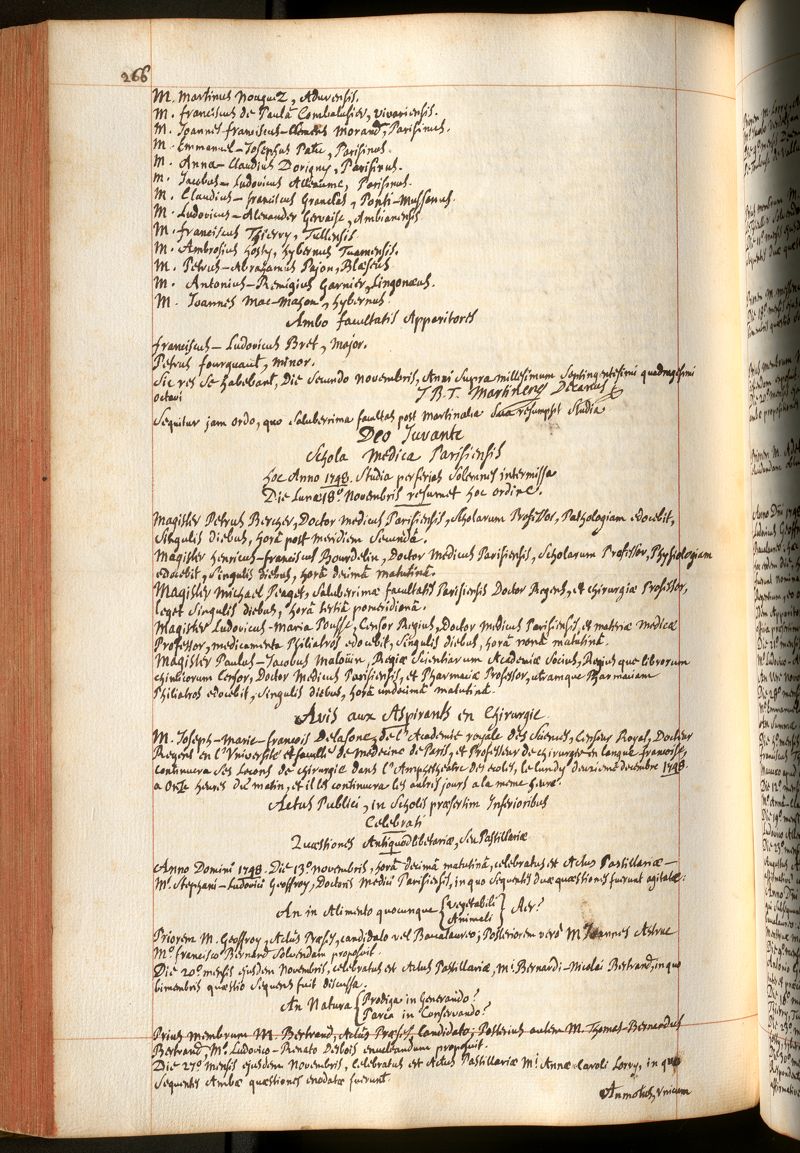 266
M. Martinus Nouguez, Adurensis.
M. franciscus de Paulâ Combalusier, Vivariensis.
M. Joannes-franciscus-Clemens Morand, Parisinus.
M. Emmanuel-Josephus Patu, Parisinus.
M. Anna-Claudius Dorigny, Parisinus.
M. Jacobus-Ludovicus Alleaume, Parisinus.
M. Claudius-franciscus Grandclas, Ponti-Mussanus.
M. Ludovicus-Alexander Gervaise, Ambianensis.
M. franciscus Thierry, Tullensis.
M. Ambrosius Hosty, hybernus Tuamensis.
M. Petrus-Abrahamus Pajon, Blæseus
M. Antonius-Remigius Garnier, Lingonæus.
M. Joannes Mac-mahon, hybernus.
Ambo facultatis Apparitores
franciscus-Ludovicus Bret, major.
Petrus fourquant, minor.
Sic res se habebant, Die secundo novembris, Anni supra millesimum septingentesimi quadragesimi
octavi
J. B. T. Martinenq Decanus
Sequitur jam ordo, quo Saluberrima facultas post martinalia sua resumpsit studia
Deo Juvante
Schola Medica Parisiensis
hoc Anno 1748. Studia per ferias Solemnes intermissa
Die Lunæ 18ª. Novembris resumet hoc ordine.
Magister Petrus Bercher, Doctor Medicus Parisiensis, Scholarum Professor, Pathologiam edocebit,
Singulis diebus, horâ post meridiem Secundâ.
Magister henricus-franciscus Bourdelin, Doctor Medicus Parisiensis, Scholarum Professor, Physiologiam
edocebit, Singulis diebus, horâ decimâ matutinâ.
Magister Michael Peaget, Saluberrimæ facultatis Parisiensis Doctor Regens, et chirurgiæ Professor,
leget Singulis diebus, horâ tertiâ pomeridianâ.
Magister Ludovicus-Maria Pousse, Censor Regius, Doctor Medicus Parisiensis, et materiæ medicæ
Professor, medicamenta Philiatros edocebit, Singulis diebus, horâ nonâ matutinâ.
Magister Paulus-Jacobus Maloüin, Regiæ Scientiarum Academiæ Socius, Regiusque librorum
chimicorum Censor, Doctor Medicus Parisiensis, et Pharmaciæ Professor, utramque Pharmaciam
Philiatros edocebit, Singulis diebus, horâ undecimâ matutinâ.
Avis aux Aspirants en Chirurgie
M. Joseph-Marie-francois Delasone, de l'Academie royale des Sciences, Censeur Royal, Docteur
Regent en l'Université et faculté de medecine de Paris, et Professeur de chirurgie en langue francoise,
continuera ses leçons de chirurgie dans l'Amphitheatre des ecoles, le lundy deuxieme decembre 1748.
a onze heures du matin, et il les continuera les autres jours a la meme heure.
Actus Publici, in Scholis præsertim Inferioribus
Celebrati
Quæstiones Antiquodlibetariæ, Seu Pastillariæ
Anno Domini 1748. Die 13º novembris, horâ decimâ matutinâ, celebratus est Actus Pastillariæ—
Mi. Stephani-Ludovici Geoffroy, Doctoris Medici Parisiensis, in quo sequentes duæ quæstiones fuerunt agitatæ:
An in Alimento quocunque { Vegetabili Animali } Aer?
Priorem M. Geoffroy, Actûs Præses, candidato vel Baccalaureo; Posteriorem verò M. Joannes Astruc
Mo. francisco Bernard Solvendam proposuit.
Die 20º mensis ejusdem Novembris, celebratus est Actus Pastillariæ, Mi. Bernardi-Nicolai Bertrand, in quo
bimembris quæstio Sequens fuit discussa.
An Natura { Prodiga in Generando? Parca in Conservando?
Prius membrum M. Bertrand, Actûs Præses, Candidato; Posterius autem M. Thomas-Bernardus
Bertrand, Mo. Ludovico-Renato Desbois enucleandum proposuit.
Die 27º mensis ejusdem Novembris, celebratus est Actus Pastillariæ Mi. Annæ Caroli Lorry, in quo
Sequentes Ambæ quæstiones enodatæ fuerunt.
An motus, Unicum